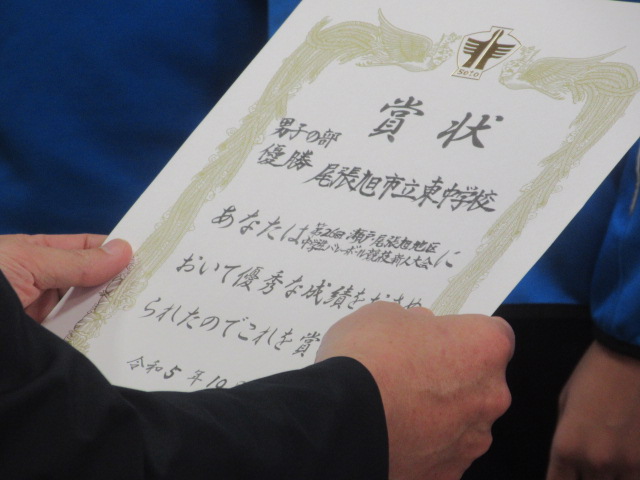 Seto
賞状
男子の部
優勝 尾張旭市立東中学校
あなたは 瀬戸尾張旭地区
中学バレーボール競技新人大会 に
おいて優秀な成績をおさめ
られたのでこれを賞
令和5年10